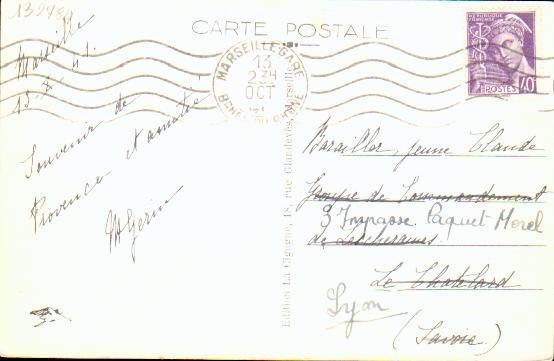 13248
CARTE POSTALE
RÉPUBLIQUE FRANÇAISE
POSTES 40
MARSEILLE-GARE
13
2 34
OCT
BCHES DU RHONE
Marseille
13-X-41.
Souvenir de
Provence et amitié
M Gerin
Edition La Cigogne, 18, rue Glandevès, Marseille
Barailler, jeune Claude
Groupe de Commandement
3 Impasse Paquet Morel
de Lescheraines.
Le Chatelard
Lyon
(Savoie)